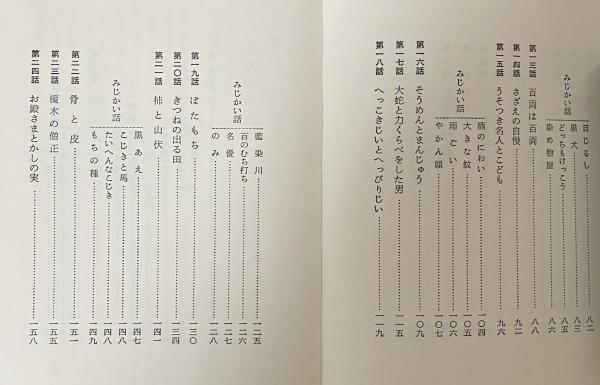 みじかい話
目じるし……八二
黒犬……八三
どっちもけっこう……八五
染め物屋……八六
第一三話 百両は百両……八八
第一四話 さざえの自慢……九二
第一五話 うそつき名人とこども……九六
みじかい話
酒のにおい……一〇四
大きな蚊……一〇五
雨ごい……一〇六
やかん頭……一〇七
第一六話 そうめんとまんじゅう……一〇九
第一七話 大蛇と力くらべをした男……一一五
第一八話 へっこきじいとへっぴりじい……一一九
みじかい話
藍染川……一二五
百のむち打ち……一二六
名優……一二七
のみ……一二八
第一九話 ぼたもち……一三〇
第二〇話 きつねの出る田……一三四
第二一話 柿と山伏……一四一
みじかい話
黒あえ……一四七
こじきと馬……一四八
たいへんなこじき……一四八
もちの種……一四九
第二二話 骨と皮……一五一
第二三話 榎木の僧正……一五五
第二四話 お殿さまとかしの実……一五八